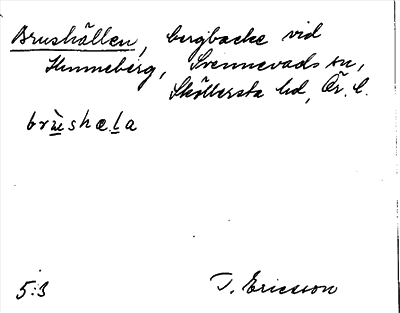 Brushällen, bergbacke vid
Hunneberg, Svennevads sn,
Sköllersta hd, Ör. l.
brùshæla
5:3
T. Ericsson